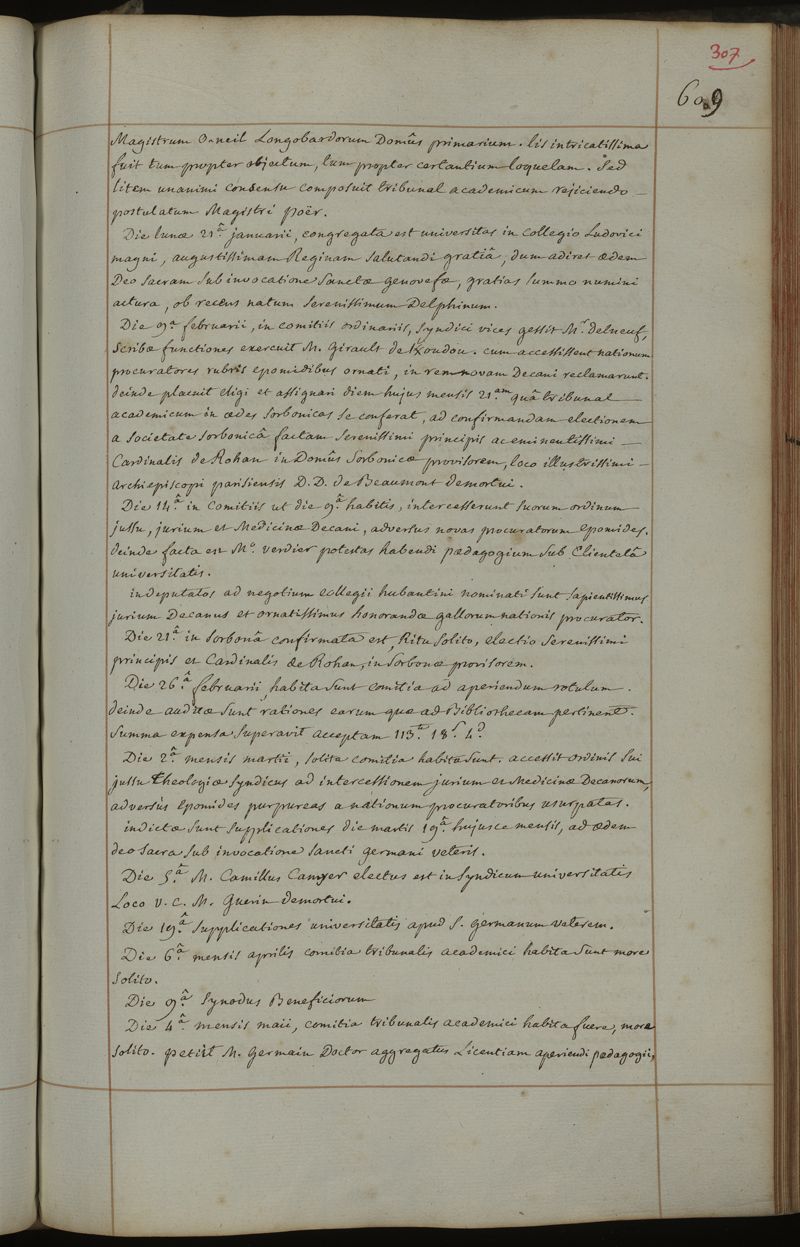 307
609
Magistrum O-neil Longobardorum Domûs primarium. lis intricatissima
fuit tum propter objectum, tum propter certantium loquelam. Sed
litem unanimi consensu composuit tribunal academicum rejiciendo
postulatum Magistri poër.
Die lunæ 21.â januarii, congregata est universitas in Collegio Ludovici
magni, augustissimam Reginam salutandi gratiâ, dum adiret ædem
Deo Sacram Sub invocatione Sanctæ genovefæ, gratias summo numini
actura, ob recens natum Serenissimum Delphinum.
Die 9.â februarii, in comitiis ordinariis, Syndici vices gessit M.r delneuf,
Scribæ functiones exercuit M. Girault de Koudou. cum accessissent nationum
procuratores rubris epomidibus ornati, in rem novam Decani reclamarunt.
deinde placuit eligi et assignari diem hujus mensis 21.am quâ tribunal
academicum in ædes Sorbonicas se conferat, ad confirmandam electionem
a Societate Sorbonicâ factam Serenissimi principis ac eminentissimi
Cardinalis de Rohan in Domûs Sorbonicæ provisorem, loco illustrissimi
archiepiscopi parisiensis D. D. de Beaumont demortui.
Die 14.â in Comitiis ut die 9.â habitis, intercesserunt suorum ordinum
jussu, jurium et Medicinæ Decani, adversus novas procuratorum epomides.
deinde facta est M.o verdier potestas habendi pædagogium Sub Clientelâ
universitatis.
in deputatos ad negotium collegii hubantini nominati Sunt Sapientissimus
jurium Decanus et ornatissimus honorandæ gallorum nationis procurator.
Die 21.â in Sorbonâ confirmata est, Ritu Solito, electio Serenissimi
principis et Cardinalis de Rohan, in Sorbonæ provisorem.
Die 26.â februarii, habita Sunt comitia ad aperiendum rotulum.
deinde auditæ Sunt rationes earum quæ ad Bibliothecam pertinent.
Summa expensa Superavit acceptam 113.tt 18.s 4.d
Die 2.â mensis martii, solita comitia habita Sunt. accessit ordinis Sui
jussu theologiæ Syndicus ad intercessionem jurium et Medicinæ Decanorum,
adversus epomides purpureas a nationum procuratoribus usurpatas.
indictæ Sunt Supplicationes die martis 19.â hujusce mensis, ad ædem
deo Sacra Sub invocatione Sancti germani veteris.
Die 5.â M. Camillus Camyer electus est in Syndicum universitatis
Loco v. c. M. Guerin demortui.
Die 19.â Supplicationes universitatis apud S. germanum veterem.
Die 6.â mensis aprilis comitia tribunalis academici habita Sunt more
Solito.
Die 9.â Synodus Beneficiorum
Die 4.â mensis maii, comitia tribunalis academici habita fuere, more
Solito. petiit M. Germain Doctor aggregatus Licentiam aperiendi pædagogii,